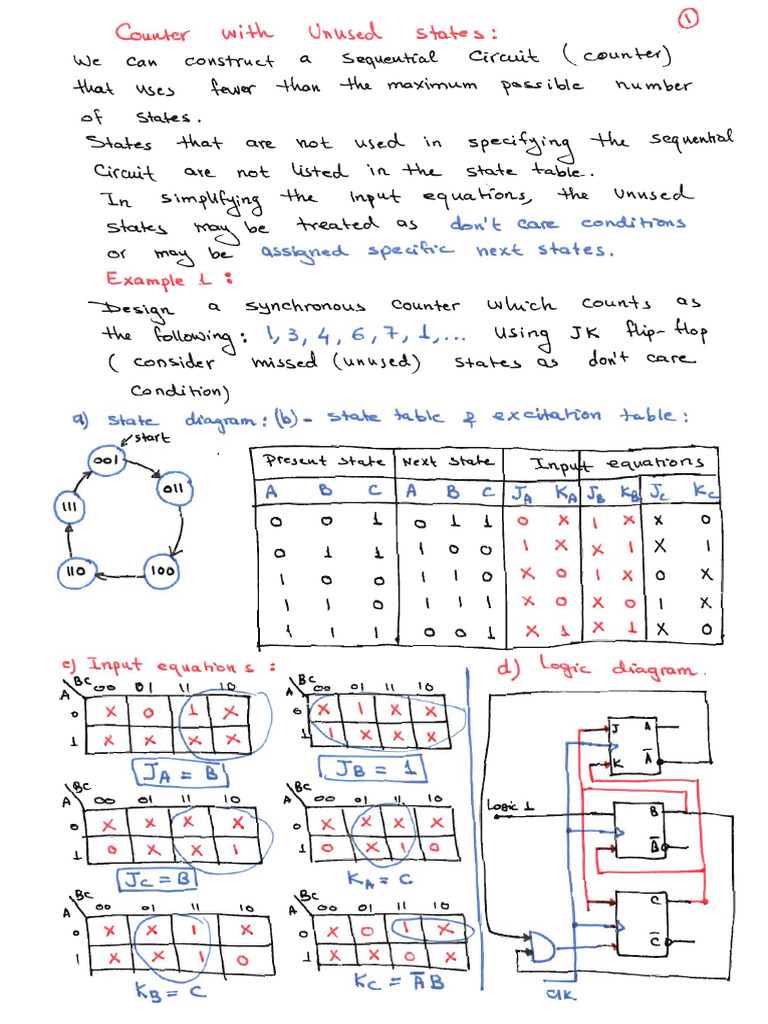 ①
Counter with Unused states:
We can construct a sequential Circuit (counter)
that uses fewer than the maximum possible number
of states.
States that are not used in specifying the sequential
Circuit are not listed in the state table.
In simplifying the input equations, the unused
states may be treated as don't care conditions
or may be assigned specific next states.
Example 1:
Design a synchronous counter which counts as
the following: 1, 3, 4, 6, 7, 1, ... Using JK flip-flop
( consider missed (unused) states as don't care
condition)
a) state diagram: (b)- state table & excitation table:
start
001
011
100
110
111
Present state Next state Input equations
A B C A B C JA KA JB KB JC KC
0 0 1 0 1 1 0 X 1 X X 0
0 1 1 1 0 0 1 X X 1 X 1
1 0 0 1 1 0 X 0 1 X 0 X
1 1 0 1 1 1 X 0 X 0 1 X
1 1 1 0 0 1 X 1 X 1 X 0
c) Input equations: d) Logic diagram.
A BC 00 01 11 10
0 X 0 1 X
1 X X X X
JA = B
A BC 00 01 11 10
0 X 1 X X
1 1 X X X
JB = 1
A BC 00 01 11 10
0 X X X X
1 0 X X 1
JC = B
A BC 00 01 11 10
0 X X X X
1 0 X 1 0
KA = C
A BC 00 01 11 10
0 X X 1 X
1 X X 1 0
KB = C
A BC 00 01 11 10
0 X 0 1 X
1 X X 0 X
KC = A̅B
J A
K A̅
Logic 1
B
B̅
C
C̅
CLK